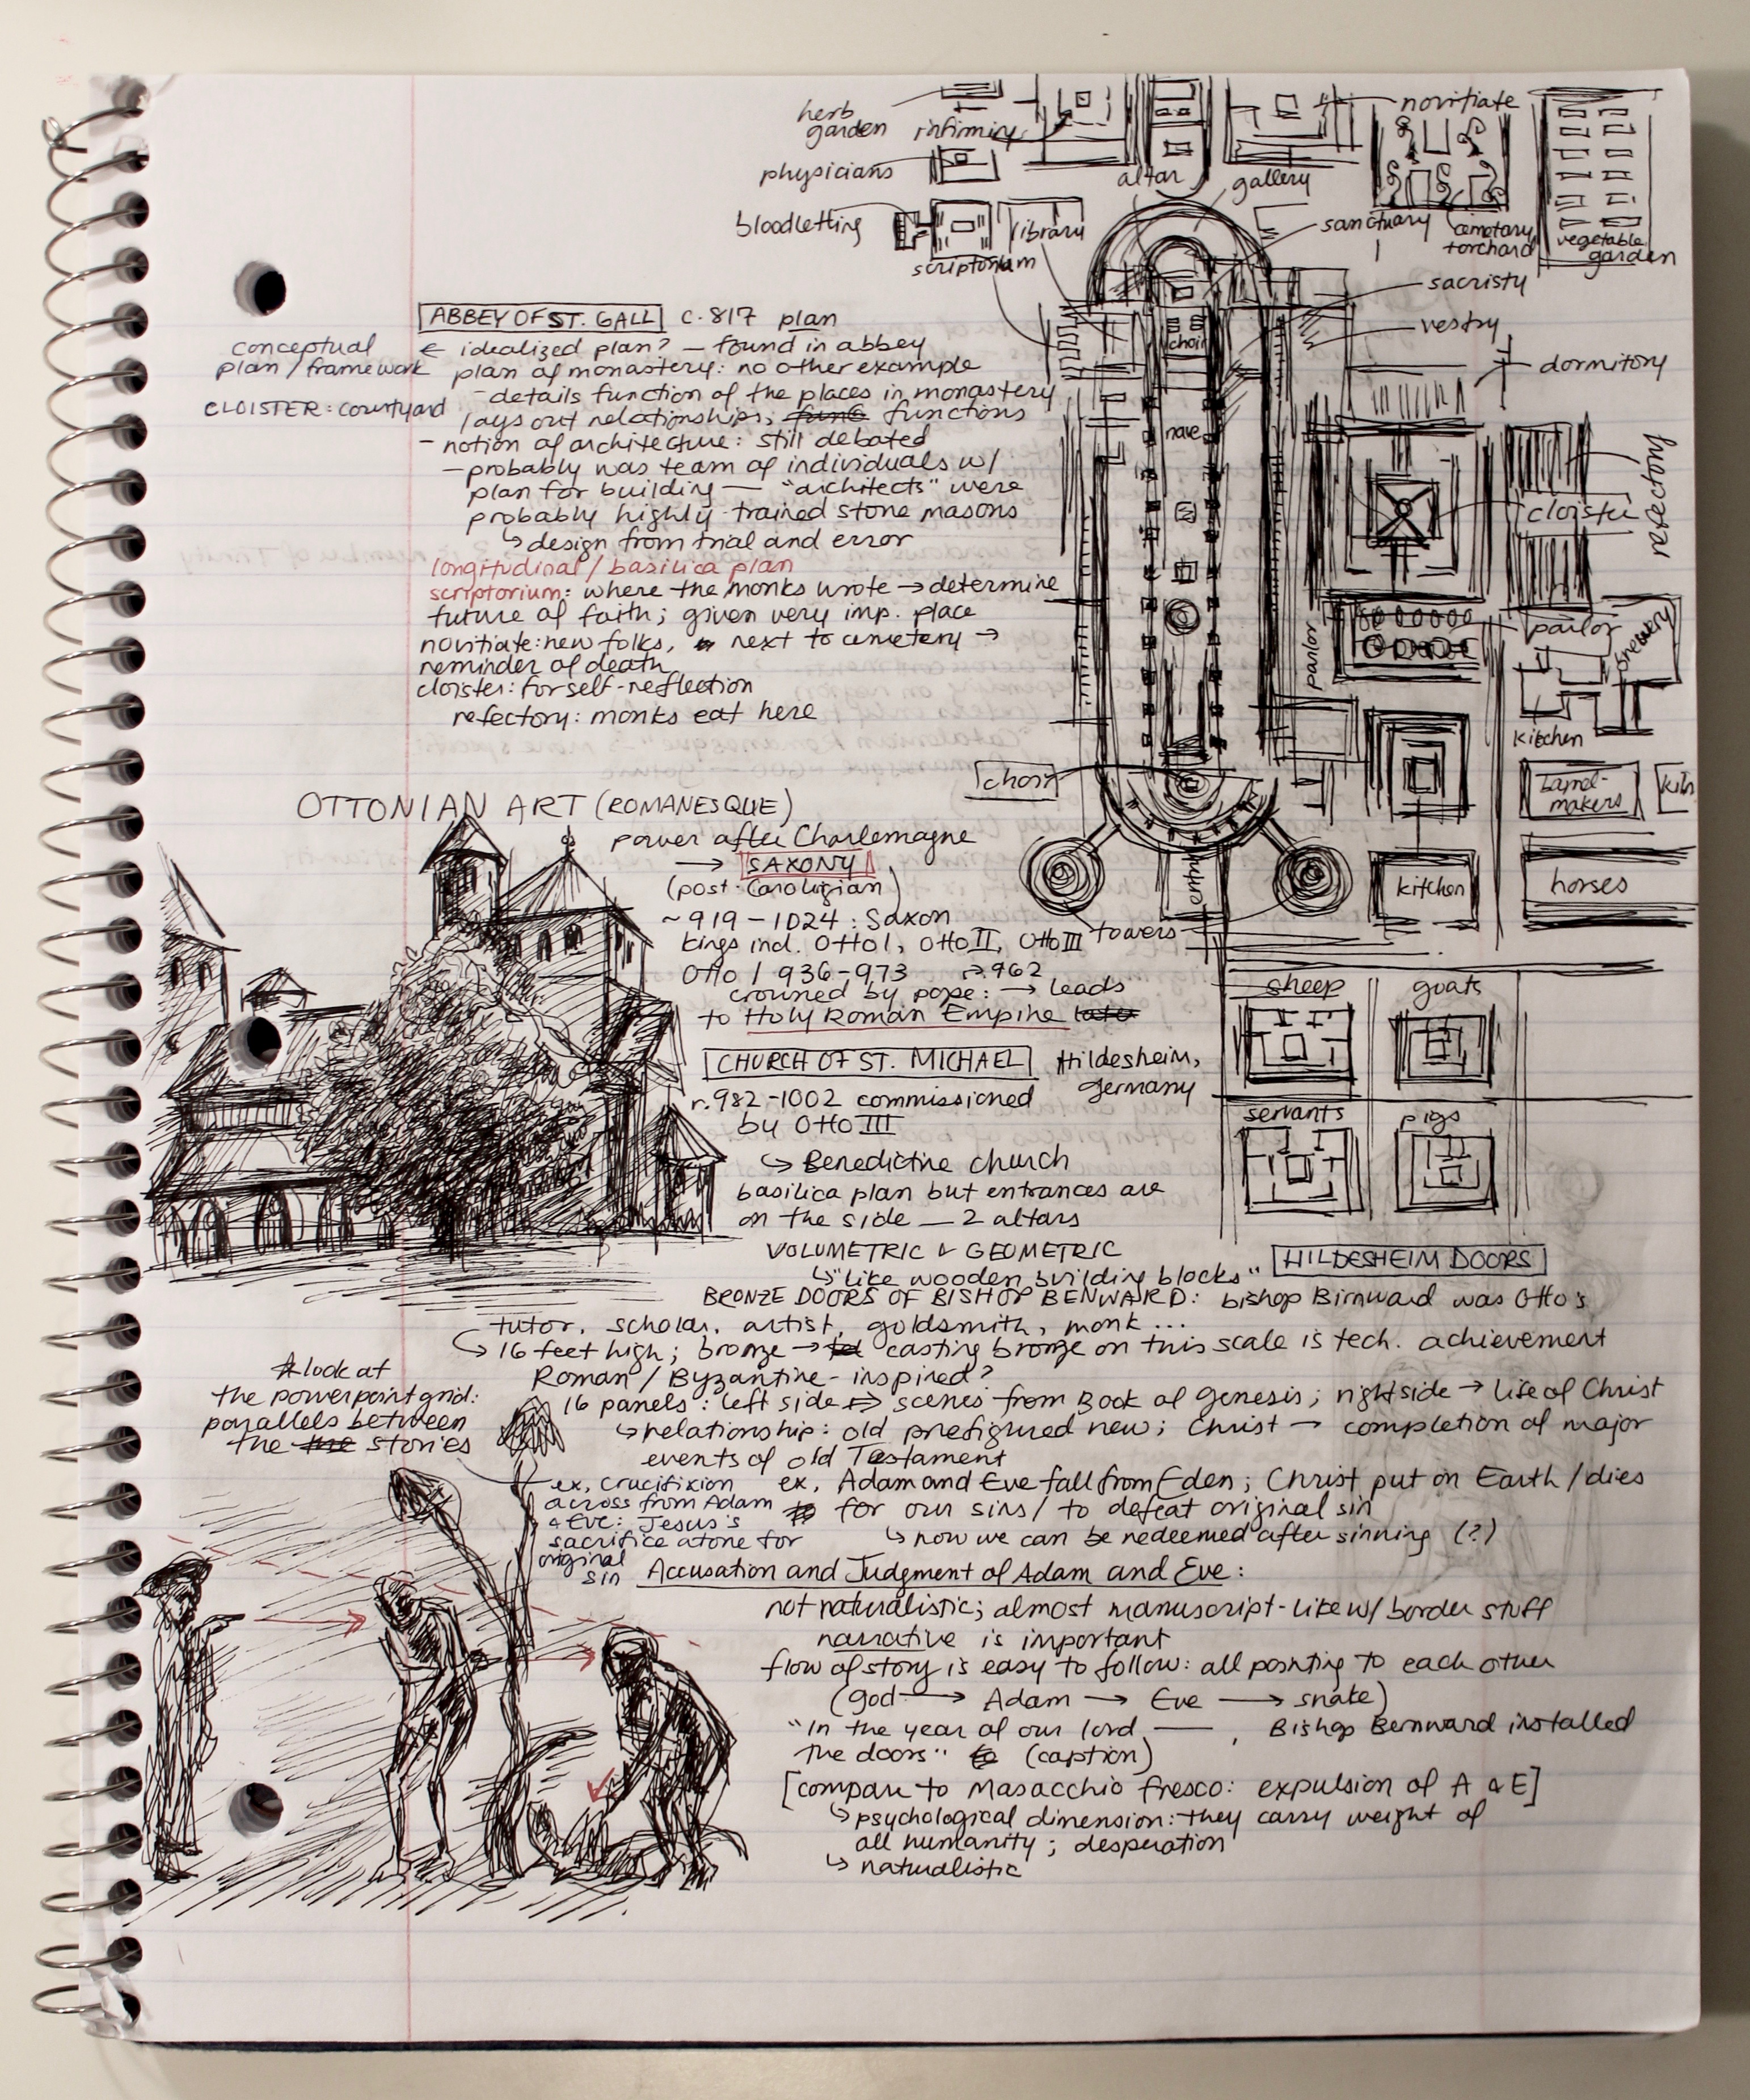 herb
garden
infirmiry
physicians
bloodletting
library
scriptorium
altar
gallery
novitiate
sanctuary
cemetary
+orchard
vegetable
garden
sacristy
vestry
dormitory
choir
nave
refectory
cloister
parlor
parlor
brewery
kitchen
barrel-
makers
kiln
choir
entry
towers
kitchen
horses
sheep
goats
servants
pigs
ABBEY OF ST. GALL c. 817 plan
← idealized plan? — found in abbey
conceptual
plan / framework
plan of monastery: no other example
- details function of the places in monastery
CLOISTER: courtyard
lays out relationships, functions
- notion of architecture: still debated
- probably was team of individuals w/
plan for building — "architects" were
probably highly-trained stone masons
↳ design from trial and error
longitudinal / basilica plan
scriptorium: where the monks wrote → determine
future of faith; given very imp. place
novitiate: new folks, next to cemetery →
reminder of death
cloister: for self-reflection
refectory: monks eat here
OTTONIAN ART (ROMANESQUE)
power after Charlemagne
→ SAXONY
(post-Carolignian)
~ 919 - 1024 : Saxon
kings incl. Otto I, Otto II, Otto III
Otto I 936-973 → 962
crowned by pope: → leads
to Holy Roman Empire
CHURCH OF ST. MICHAEL Hildesheim,
Germany
r. 982-1002 commissioned
by Otto III
↳ Benedictine church
basilica plan but entrances are
on the side — 2 altars
VOLUMETRIC & GEOMETRIC
↳ "like wooden building blocks"
HILDESHEIM DOORS
BRONZE DOORS OF BISHOP BENWARD: bishop Birnward was Otto's
tutor, scholar, artist, goldsmith, monk...
↳ 16 feet high; bronze → casting bronze on this scale is tech. achievement
Roman / Byzantine-inspired?
16 panels: left side ⇒ scenes from Book of Genesis; right side → life of Christ
↳ relationship: old prefigured new; Christ → completion of major
events of old Testament
☆ look at
the powerpoint grid:
parallels between
the stories
ex. Crucifixion
across from Adam
& Eve: Jesus's
sacrifice atone for
original
sin
ex. Adam and Eve fall from Eden; Christ put on Earth / dies
for our sins / to defeat original sin
↳ now we can be redeemed after sinning (?)
Accusation and Judgment of Adam and Eve:
not naturalistic; almost manuscript-like w/ border stuff
narrative is important
flow of story is easy to follow: all pointing to each other
(god → Adam → Eve → snake)
"In the year of our lord ——, Bishop Bernward installed
the doors" (caption)
[compare to Masacchio fresco: expulsion of A & E]
↳ psychological dimension: they carry weight of
all humanity; desperation
↳ naturalistic